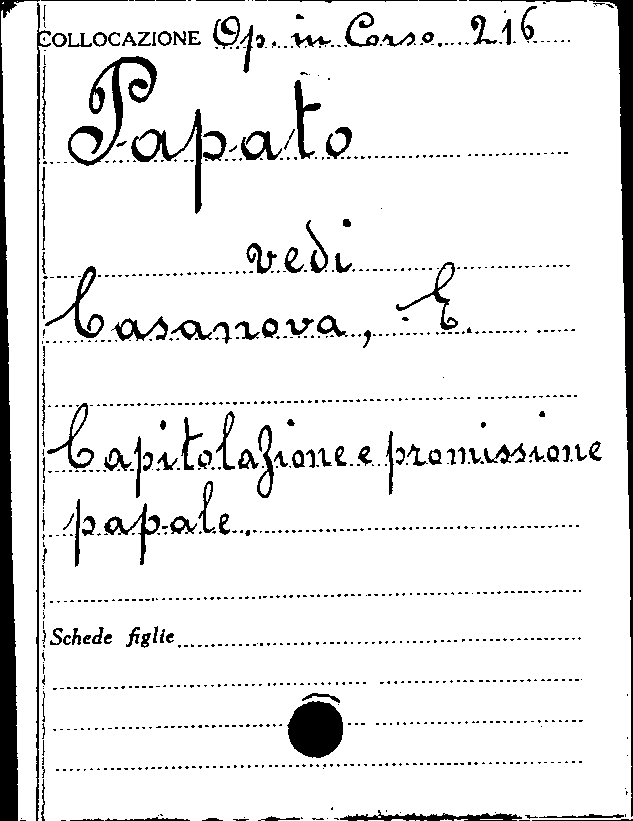 COLLOCAZIONE Op. in Corso 216
Papato
vedi
Casanova, E.
Capitolazione e promissione
papale.
Schede figlie